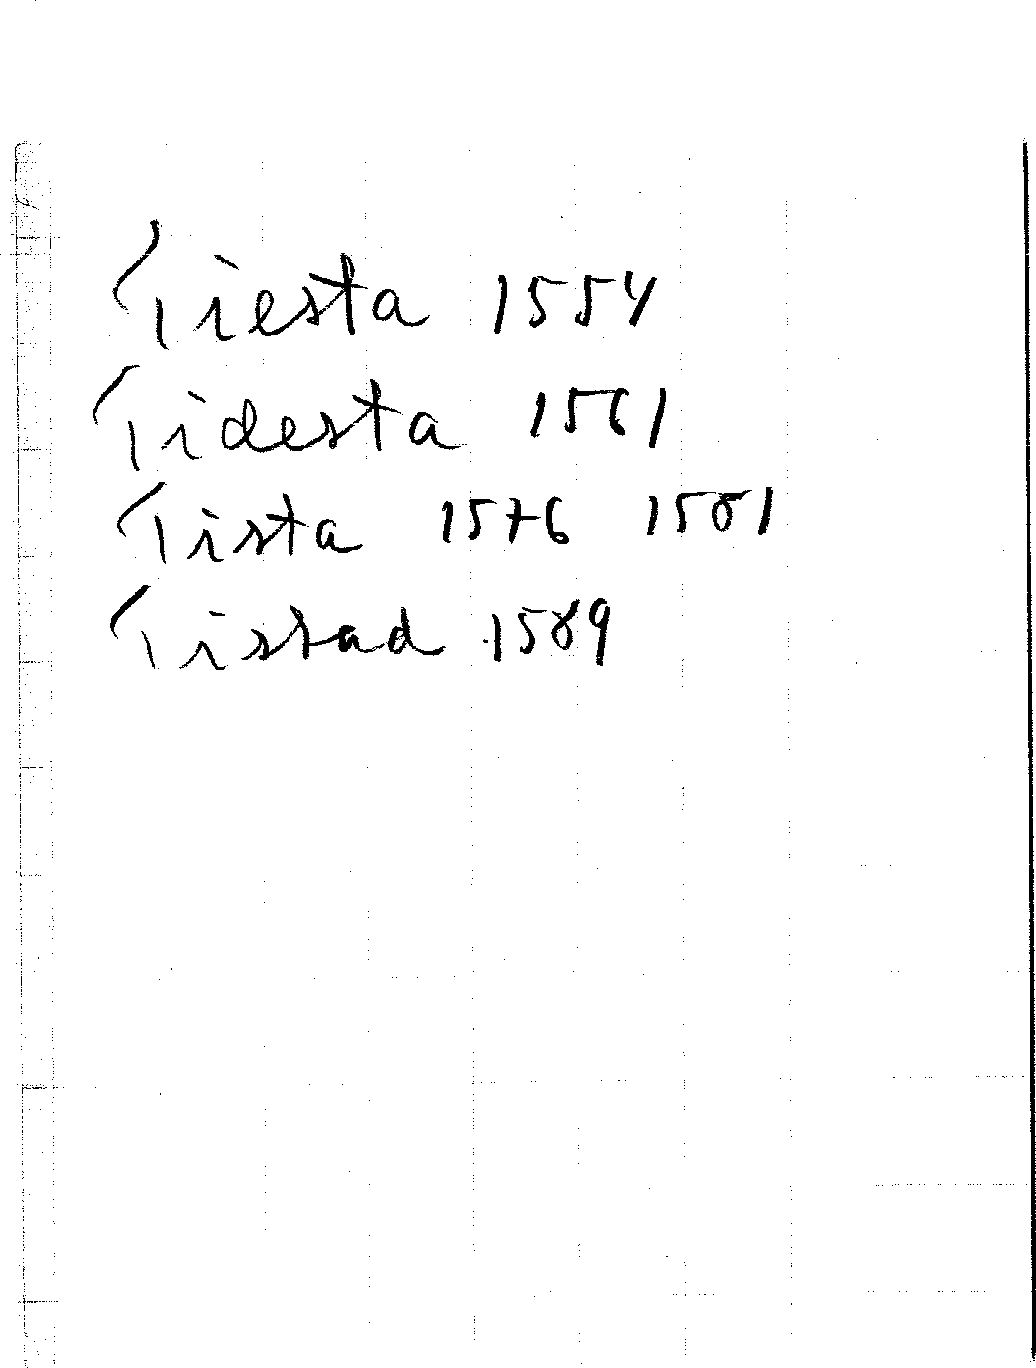 Tiesta 1554
Tidesta 1561
Tista 1576 1581
Tistad 1589